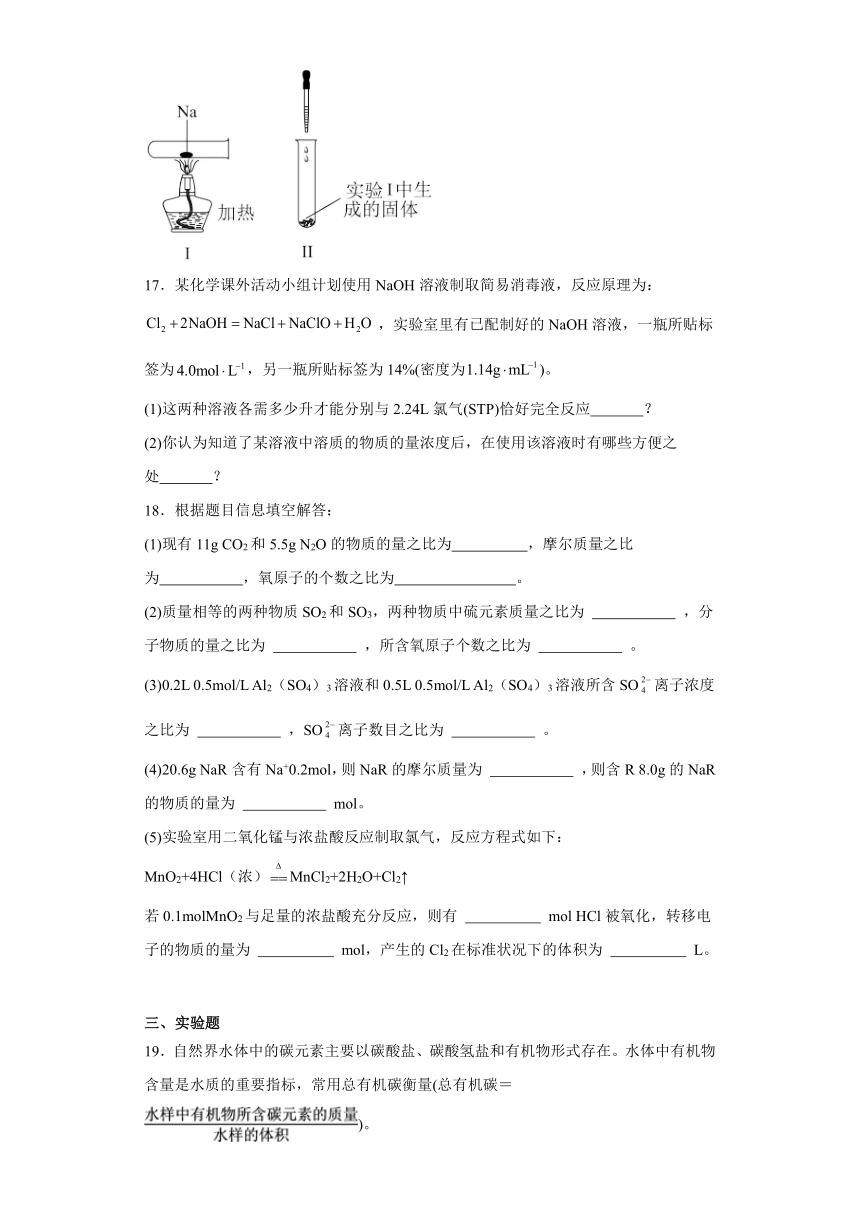 Na
加热
I
实验 I 中生
成的固体
II
17．某化学课外活动小组计划使用 NaOH 溶液制取简易消毒液，反应原理为：
Cl₂＋2NaOH＝NaCl＋NaClO＋H₂O ，实验室里有已配制好的 NaOH 溶液，一瓶所贴标
签为 4.0mol·L⁻¹，另一瓶所贴标签为 14%(密度为1.14g·mL⁻¹)。
(1)这两种溶液各需多少升才能分别与 2.24L 氯气(STP)恰好完全反应_______？
(2)你认为知道了某溶液中溶质的物质的量浓度后，在使用该溶液时有哪些方便之
处_______？
18．根据题目信息填空解答：
(1)现有 11g CO₂ 和 5.5g N₂O 的物质的量之比为__________，摩尔质量之比
为___________，氧原子的个数之比为________________。
(2)质量相等的两种物质 SO₂ 和 SO₃，两种物质中硫元素质量之比为 ___________ ，分
子物质的量之比为 ___________ ，所含氧原子个数之比为 ___________ 。
(3)0.2L 0.5mol/L Al₂（SO₄）₃ 溶液和 0.5L 0.5mol/L Al₂（SO₄）₃ 溶液所含 SO₄²⁻ 离子浓度
之比为 ___________ ，SO₄²⁻ 离子数目之比为 ___________ 。
(4)20.6g NaR 含有 Na⁺0.2mol，则 NaR 的摩尔质量为 ___________ ，则含 R 8.0g 的 NaR
的物质的量为 ___________ mol。
(5)实验室用二氧化锰与浓盐酸反应制取氯气，反应方程式如下：
MnO₂+4HCl（浓） =Δ= MnCl₂+2H₂O+Cl₂↑
若 0.1molMnO₂ 与足量的浓盐酸充分反应，则有 __________ mol HCl 被氧化，转移电
子的物质的量为 __________ mol，产生的 Cl₂ 在标准状况下的体积为 __________ L。
三、实验题
19．自然界水体中的碳元素主要以碳酸盐、碳酸氢盐和有机物形式存在。水体中有机物
含量是水质的重要指标，常用总有机碳衡量(总有机碳＝
水样中有机物所含碳元素的质量
水样的体积
)。